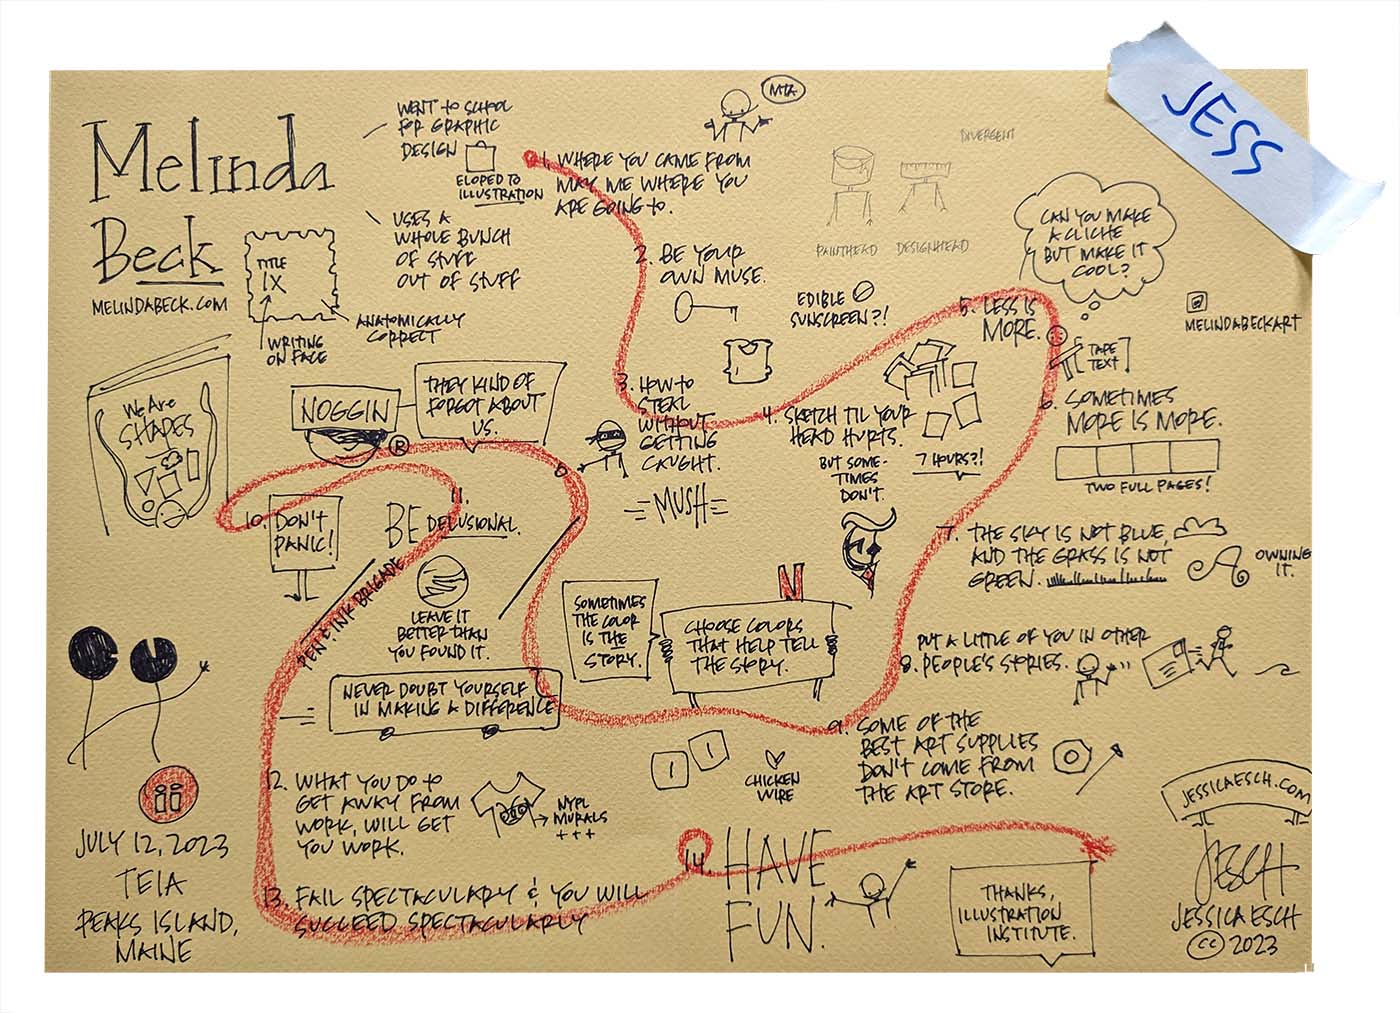 JESS
Melinda
Beck
MELINDABECK.COM
WENT TO SCHOOL
FOR GRAPHIC
DESIGN
ELOPED TO
ILLUSTRATION
USES A
WHOLE BUNCH
OF STUFF
OUT OF STUFF
TITLE
IX
WRITING
ON FACE
ANATOMICALLY
CORRECT
We Are
SHAPES
MTA
1. WHERE YOU CAME FROM
MAY ME WHERE YOU
ARE GOING TO.
DIVERGENT
PAINTHEAD
DESIGNHEAD
2. BE YOUR
OWN MUSE.
EDIBLE
SUNSCREEN?!
3. HOW TO
STEAL
WITHOUT
GETTING
CAUGHT.
MUSH
4. SKETCH TIL YOUR
HEAD HURTS.
BUT SOME-
TIMES
DON'T.
7 HOURS?!
CAN YOU MAKE
A CLICHE
BUT MAKE IT
COOL?
5. LESS IS
MORE.
TAPE
TEXT
MELINDABECKART
6. SOMETIMES
MORE IS MORE.
TWO FULL PAGES!
7. THE SKY IS NOT BLUE,
AND THE GRASS IS NOT
GREEN.
OWNING
IT.
PUT A LITTLE OF YOU IN OTHER
8. PEOPLE'S STORIES.
9. SOME OF THE
BEST ART SUPPLIES
DON'T COME FROM
THE ART STORE.
CHICKEN
WIRE
N
CHOOSE COLORS
THAT HELP TELL
THE STORY.
SOMETIMES
THE COLOR
IS THE
STORY.
NOGGIN
®
THEY KIND OF
FORGOT ABOUT
US.
10. DON'T
PANIC!
11.
BE DELUSIONAL.
PEN & INK BRIGADE
LEAVE IT
BETTER THAN
YOU FOUND IT.
NEVER DOUBT YOURSELF
IN MAKING A DIFFERENCE
12. WHAT YOU DO TO
GET AWAY FROM
WORK, WILL GET
YOU WORK.
NYPL
MURALS
+++
13. FAIL SPECTACULARLY & YOU WILL
SUCCEED SPECTACULARLY
14. HAVE
FUN.
THANKS,
ILLUSTRATION
INSTITUTE.
JULY 12, 2023
TEIA
PEAKS ISLAND,
MAINE
JESSICAESCH.COM
JESCH
JESSICA ESCH
CC 2023